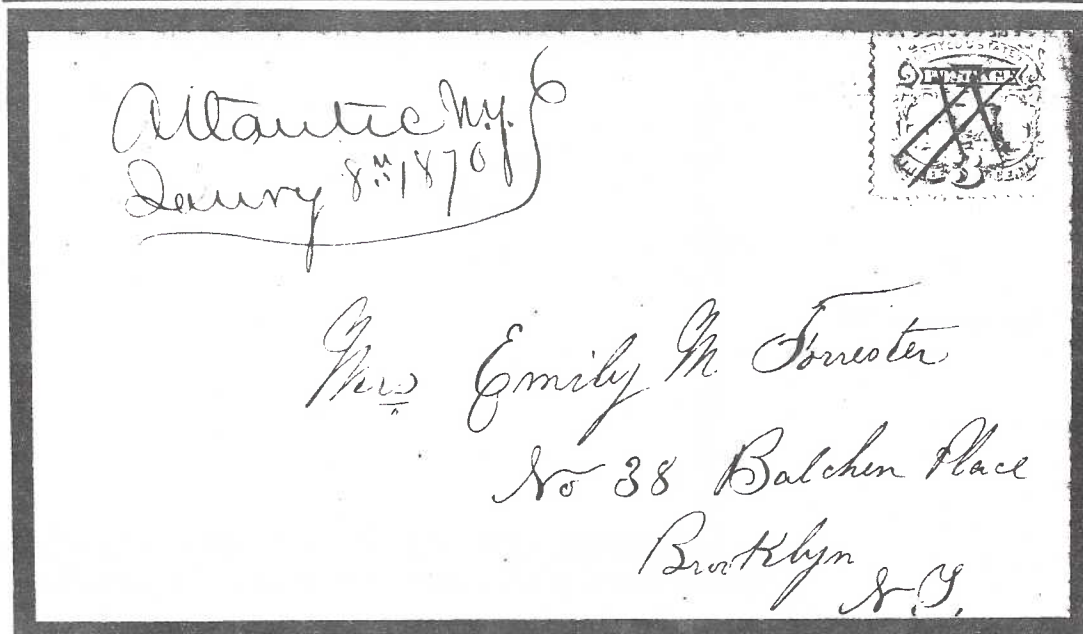 Atlantic N.Y.
Jaury 8th, 1870
UNITED STATES
POSTAGE
3
Mrs Emily M Forrester
No 38 Balchen Place
Brooklyn
N.Y.